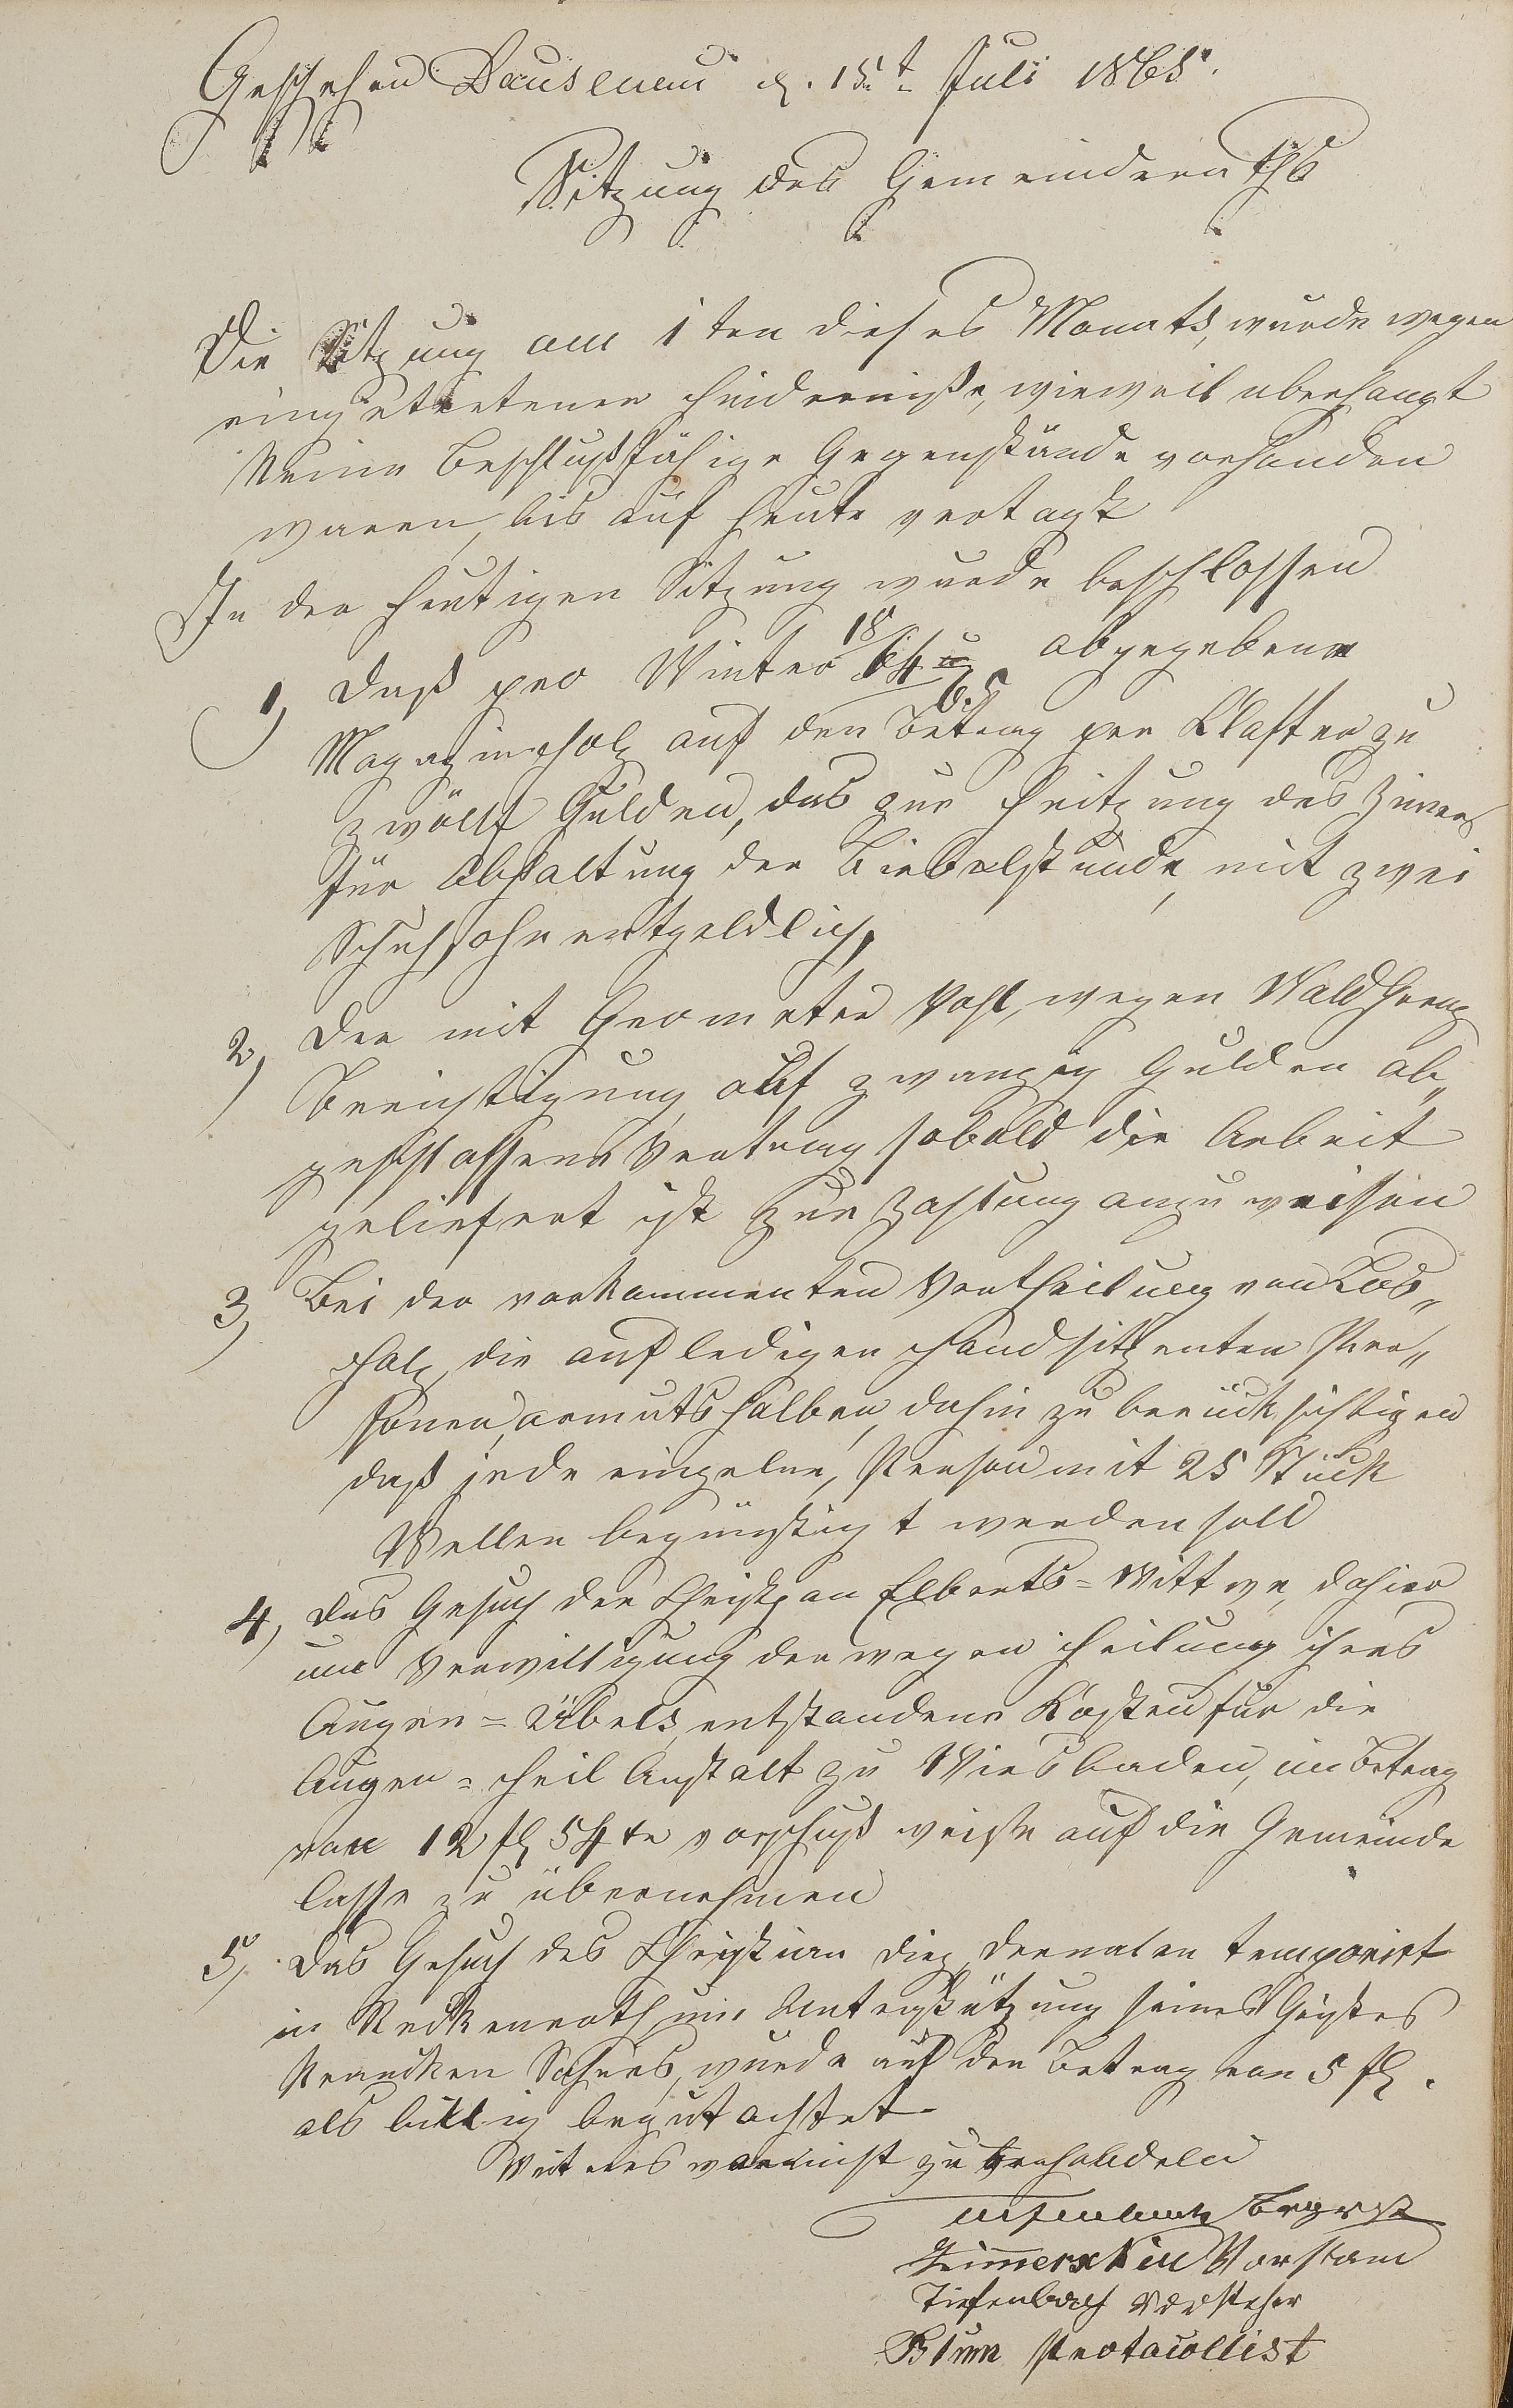 Geschehen Dausenau d. 15t Juli 1865.
Sitzung des Gemeinderaths
Die Sitzung am 1ten dieses Monats, wurde wegen
eingetretenen Hinderniße, wieweil uberhaupt
Keine Beschlußfähige Gegenstände vorhanden
waren, bis auf heute vertagt
In der heutigen Sitzung wurde beschlossen
1, Daß pro Winter 1864 u 65 abgegebene
Magazinholz auf den Betrag per Klafter zu
zwölf Gulden, das zur Heitzung des Zimers
für Abhaltung der Biebelstunde, mit zwei
Schuh, ohnentgeldlich,
2, Der mit Geometer Pohl, wegen Waldgrenz
Berichtigung auf zwanzig Gulden ab„
geschlossene Vertrag sobald die Arbeit
geliefert ist zur Zahlung anzuweisen
3, Bei der vorkommenten Vertheilung von Los„
Holz, die auf ledigen Hand sitzenten Per„
sonen, armuts halben, dahin zu berücksichtigen
daß jede einzelne, Person mit 25 Stück
Wellen begünstigt werden soll
4, Das Gesuch der Christian Elberts=Wittwe, dahier
um Verwilligung der wegen Heilung ihres
Augen=Übels, entstandene Kosten für die
Augen=Heil Anstalt zu Wiesbaden, im Betrag
von 12 fl 54 xr vorschuß weiße auf die Gemeinde
casse zu übernehmen
5, Das Gesuch des Christian Diez, dermalen temporirt
in Reckenroth, um Unterstützung seines Geistes
Krancken Sohnes, wurde auf den Betrag von 5 fl.
als billig begutachtet
Weiteres war nicht zu verhandeln
Bügrst
Zimerschied Vorstand
Tiefenbach Vorsteher
Blum Protocollist